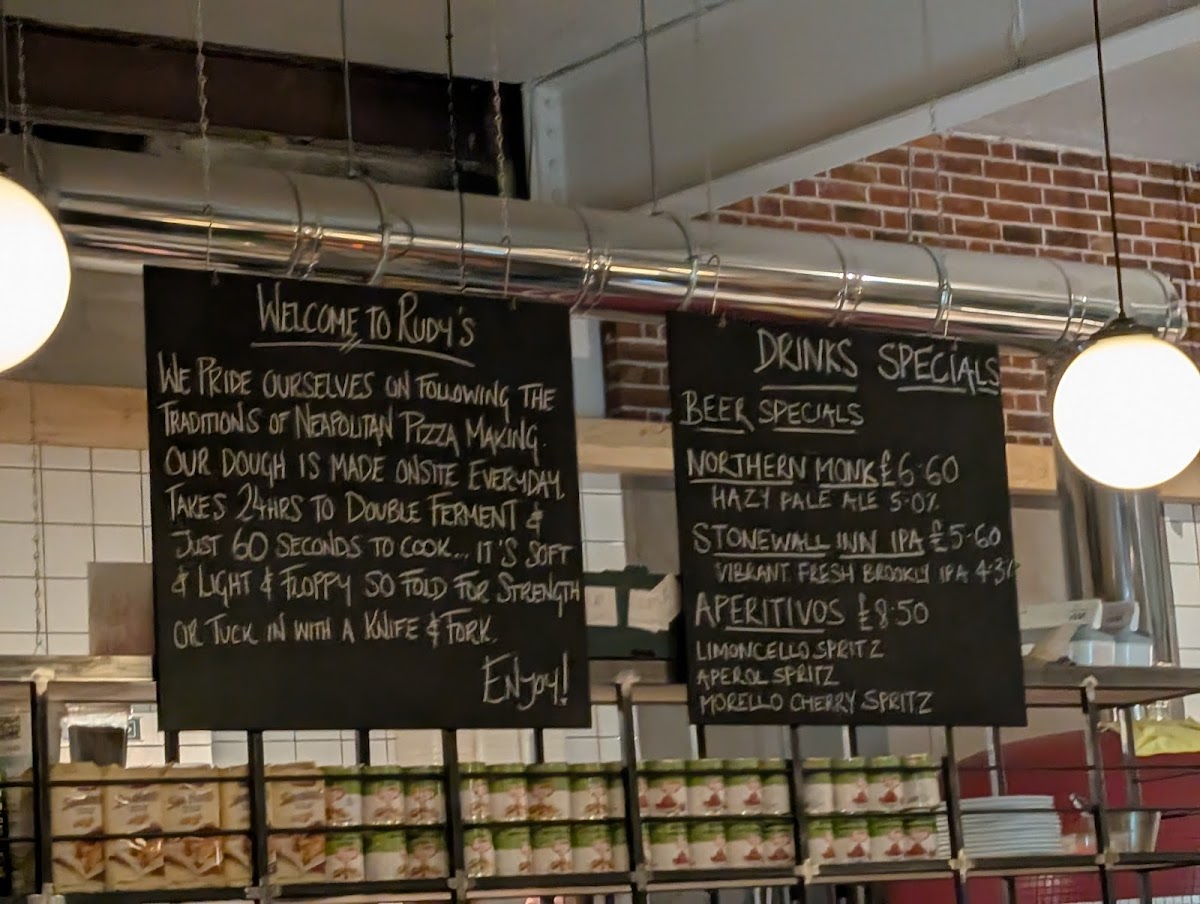 WELCOME TO RUDY'S
WE PRIDE OURSELVES ON FOLLOWING THE
TRADITIONS OF NEAPOLITAN PIZZA MAKING.
OUR DOUGH IS MADE ONSITE EVERYDAY.
TAKES 24HRS TO DOUBLE FERMENT &
JUST 60 SECONDS TO COOK... IT'S SOFT
& LIGHT & FLOPPY SO FOLD FOR STRENGTH
OR TUCK IN WITH A KNIFE & FORK.
ENJOY!
DRINKS SPECIALS
BEER SPECIALS
NORTHERN MONK £6.60
HAZY PALE ALE 5.0%
STONEWALL INN IPA £5.60
VIBRANT FRESH BROOKLY IPA 4.3%
APERITIVOS £8.50
LIMONCELLO SPRITZ
APEROL SPRITZ
MORELLO CHERRY SPRITZ